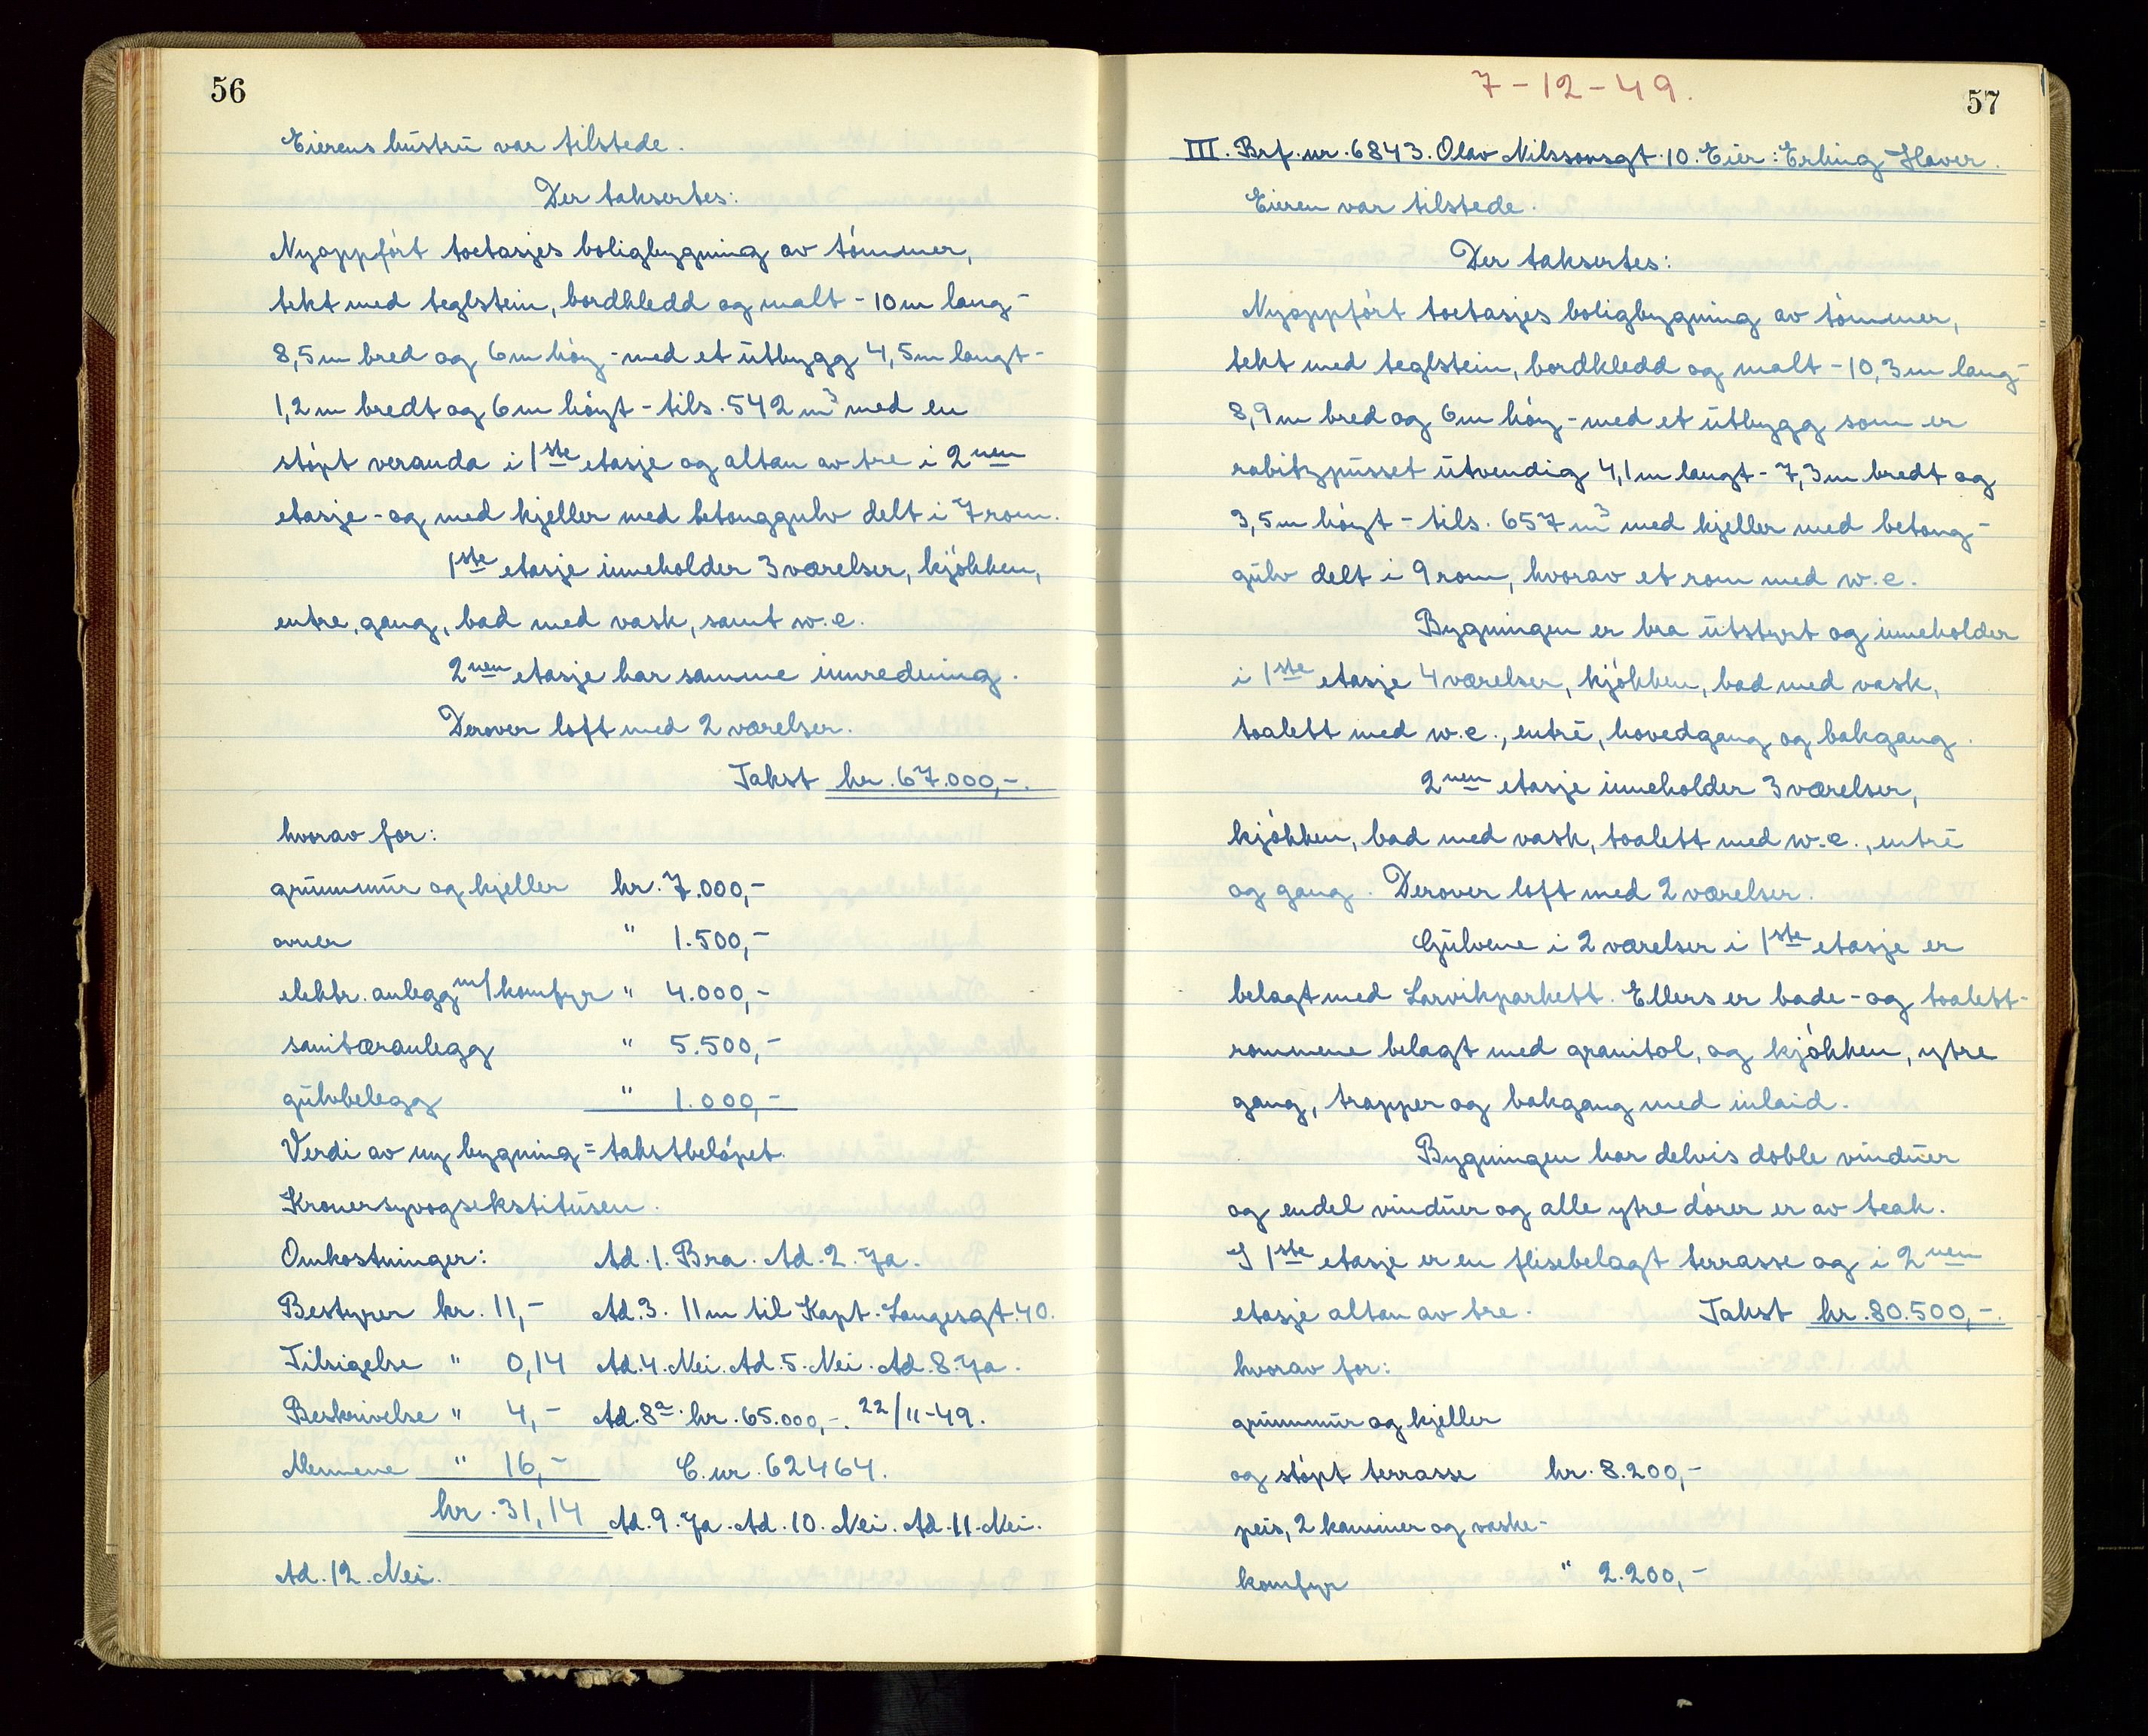 56
Eierens hustru var tilstede.
Der taksertes:
Nyoppført toetasjes boligbygning av tømmer,
tekt med teglstein, bordkledd og malt - 10 m lang -
8,5 m bred og 6 m høy - med et utbygg 4,5 m langt -
1,2 m bredt og 6 m høyt - tils. 542 m³ med en
støpt veranda i 1ste etasje og altan av tre i 2nen
etasje - og med kjeller med betonggulv delt i 7 rom.
1ste etasje inneholder 3 værelser, kjøkken,
entre, gang, bad med vask, samt w.c.
2nen etasje har samme innredning.
Derover loft med 2 værelser.
Takst kr. 67.000,-.
hvorav for:
grunnmur og kjeller kr. 7.000,-
ovner " 1.500,-
elektr. anlegg m/komfyr " 4.000,-
sanitæranlegg " 5.500,-
gulvbelegg " 1.000,-
Verdi av ny bygning = takstbeløpet.
Kronersyvogsekstitusen.
Omkostninger: Ad. 1. Bra. Ad. 2. Ja.
Bestyrer kr. 11,- Ad. 3. 11 m til Kapt. Langesgt. 40.
Tilsigelse " 0,14 Ad. 4. Nei. Ad. 5. Nei. Ad. 8. Ja.
Beskrivelse " 4,- Ad. 8a. kr. 65.000,-. 22/11-49.
Mennene " 16,- C. nr. 62464.
kr. 31,14 Ad. 9. Ja. Ad. 10. Nei. Ad. 11. Nei.
Ad. 12. Nei.
7-12-49.
57
III. Brf. nr. 6843. Olav Nilssonsgt. 10. Eier: Erling Haver.
Eieren var tilstede.
Der taksertes:
Nyoppført toetasjes boligbygning av tømmer,
tekt med teglstein, bordkledd og malt - 10,3 m lang -
8,9 m bred og 6 m høy - med et utbygg som er
rabitzpusset utvendig 4,1 m langt - 7,3 m bredt og
3,5 m høyt - tils. 657 m³ med kjeller med betong-
gulv delt i 9 rom, hvorav et rom med w.c.
Bygningen er bra utstyrt og inneholder
i 1ste etasje 4 værelser, kjøkken, bad med vask,
toalett med w.c., entré, hovedgang og bakgang.
2nen etasje inneholder 3 værelser,
kjøkken, bad med vask, toalett med w.c., entré
og gang. Derover loft med 2 værelser.
Gulvene i 2 værelser i 1ste etasje er
belagt med Larvikparkett. Ellers er bade- og toalett-
rommene belagt med granitol, og kjøkken, ytre
gang, trapper og bakgang med inlaid.
Bygningen har delvis doble vinduer
og endel vinduer og alle ytre dører er av teak.
I 1ste etasje er en flisebelagt terrasse og i 2nen
etasje altan av tre. Takst kr. 80.500,-.
hvorav for:
grunnmur og kjeller
og støpt terrasse kr. 8.200,-
peis, 2 kaminer og vaske-
komfyr " 2.200,-